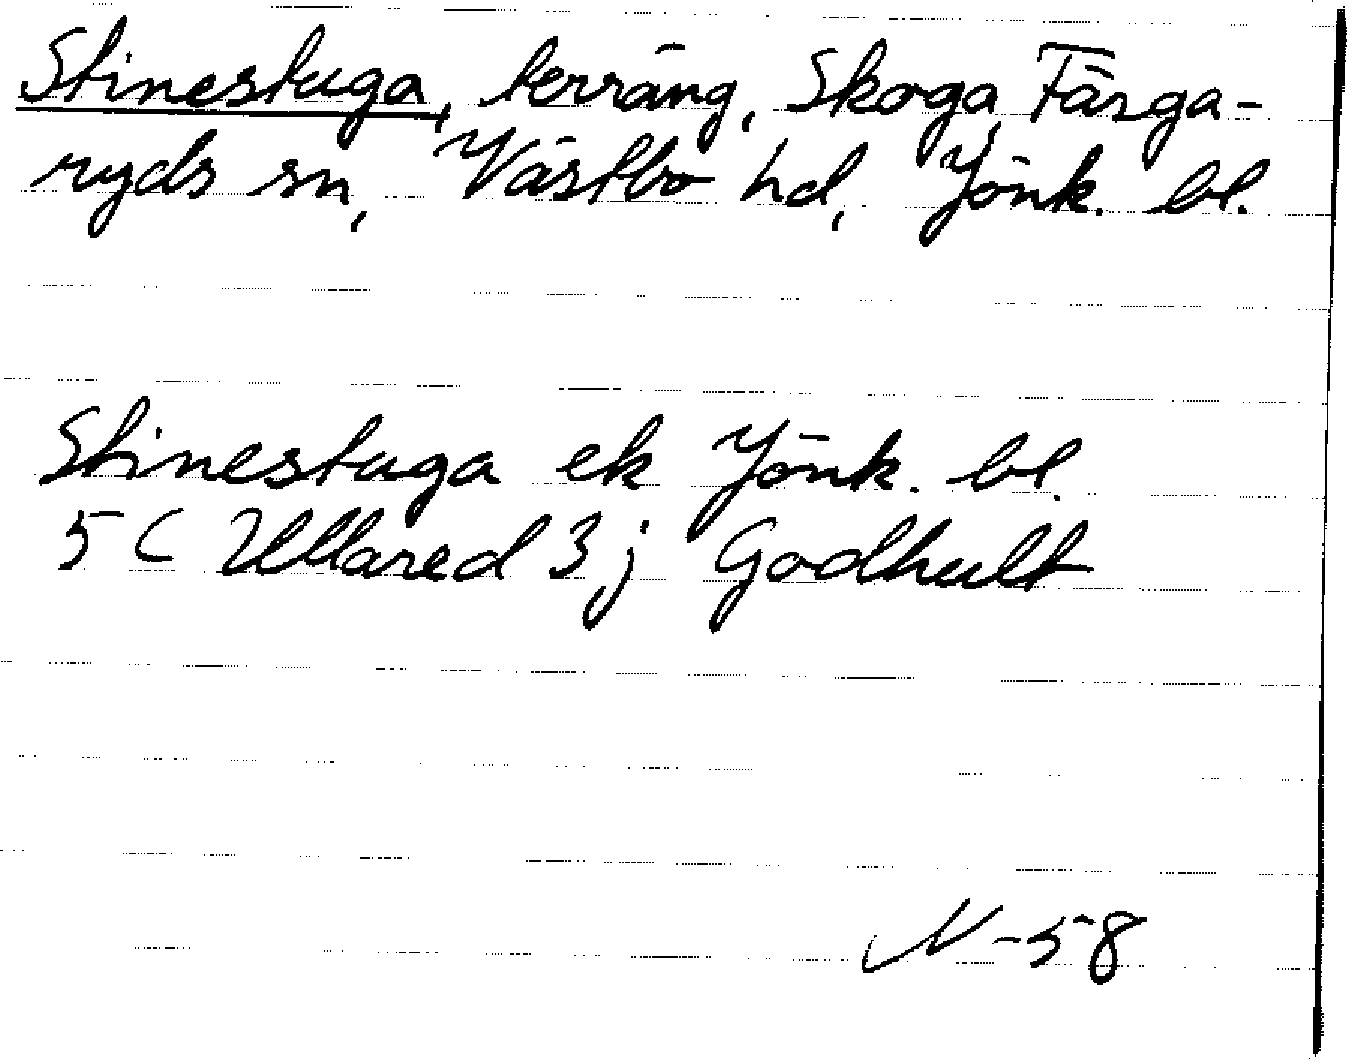 Stinestuga, terräng, Skoga, Färga-
ryds sn, Västbo hd, Jönk. bl.
Stinestuga ek Jönk. bl.
5 C Ullared 3j Godhult
N-58